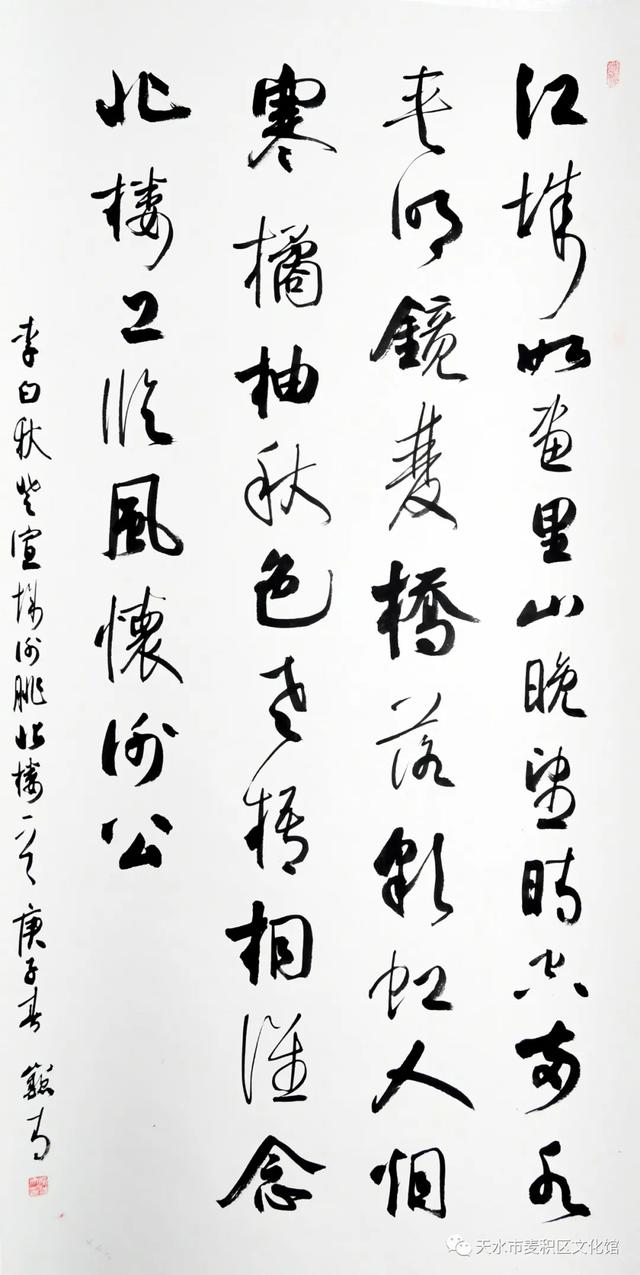 江城如画里山晚望晴空两水
夾明鏡雙橋落彩虹人烟
寒橘柚秋色老梧桐誰念
北樓上臨風懷謝公
李白秋登宣城謝朓北樓一首 庚子春
天水市麦积区文化馆